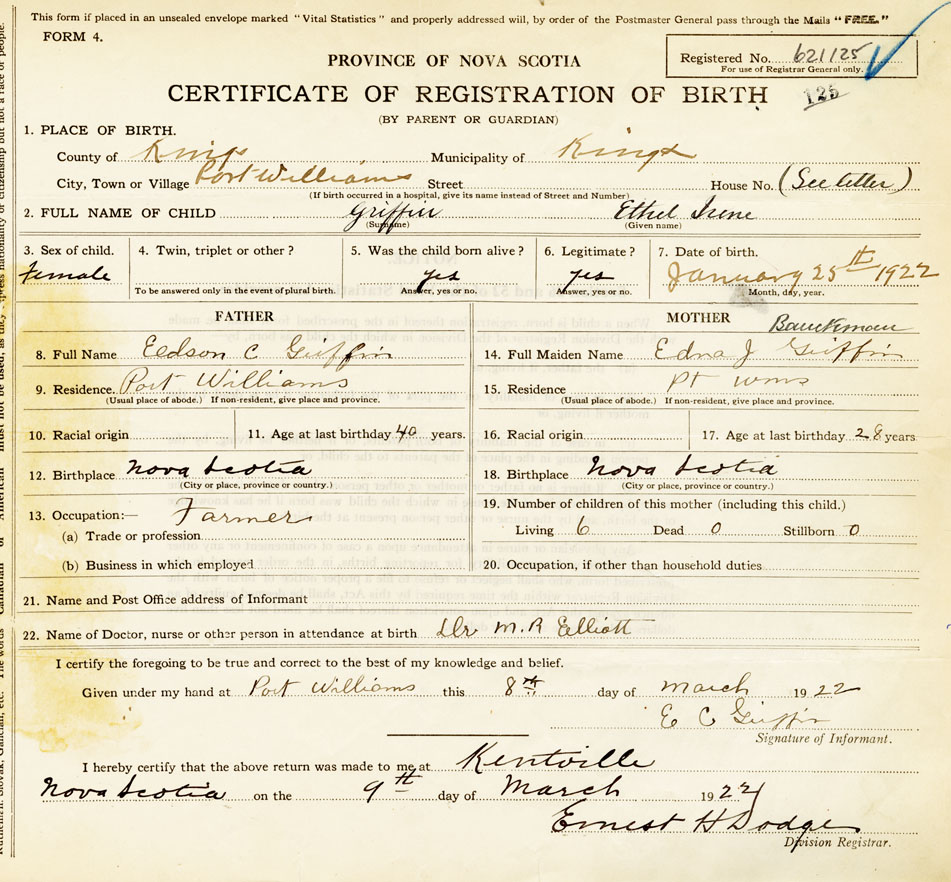 This form if placed in an unsealed envelope marked "Vital Statistics" and properly addressed will, by order of the Postmaster General pass through the Mails "FREE."
FORM 4.
PROVINCE OF NOVA SCOTIA
Registered No. 621125
For use of Registrar General only.
CERTIFICATE OF REGISTRATION OF BIRTH
125
(BY PARENT OR GUARDIAN)
1. PLACE OF BIRTH.
County of Kings Municipality of Kings
City, Town or Village Port Williams Street House No. (See letter)
(If birth occurred in a hospital, give its name instead of Street and Number)
2. FULL NAME OF CHILD Griffin Ethel Irene
(Surname) (Given name)
3. Sex of child. 4. Twin, triplet or other? 5. Was the child born alive? 6. Legitimate? 7. Date of birth.
Female yes yes January 25th 1922
To be answered only in the event of plural birth. Answer, yes or no. Answer, yes or no. Month, day, year.
FATHER MOTHER
8. Full Name Eldson C Griffin 14. Full Maiden Name Edna J Griffin
9. Residence. Port Williams 15. Residence Pt Wms
(Usual place of abode.) If non-resident, give place and province. (Usual place of abode.) If non-resident, give place and province.
10. Racial origin 11. Age at last birthday 40 years. 16. Racial origin 17. Age at last birthday 28 years
12. Birthplace Nova Scotia 18. Birthplace Nova Scotia
(City or place, province or country.) (City or place, province or country.)
13. Occupation:— Farmer 19. Number of children of this mother (including this child.)
(a) Trade or profession Living 6 Dead 0 Stillborn 0
(b) Business in which employed 20. Occupation, if other than household duties
21. Name and Post Office address of Informant
22. Name of Doctor, nurse or other person in attendance at birth Dr M.R Elliott
I certify the foregoing to be true and correct to the best of my knowledge and belief.
Given under my hand at Port Williams this 8th day of March 1922
E C Griffin
Signature of Informant.
I hereby certify that the above return was made to me at Kentville
Nova Scotia on the 9th day of March 1922
Ernest H Dodge
Division Registrar.